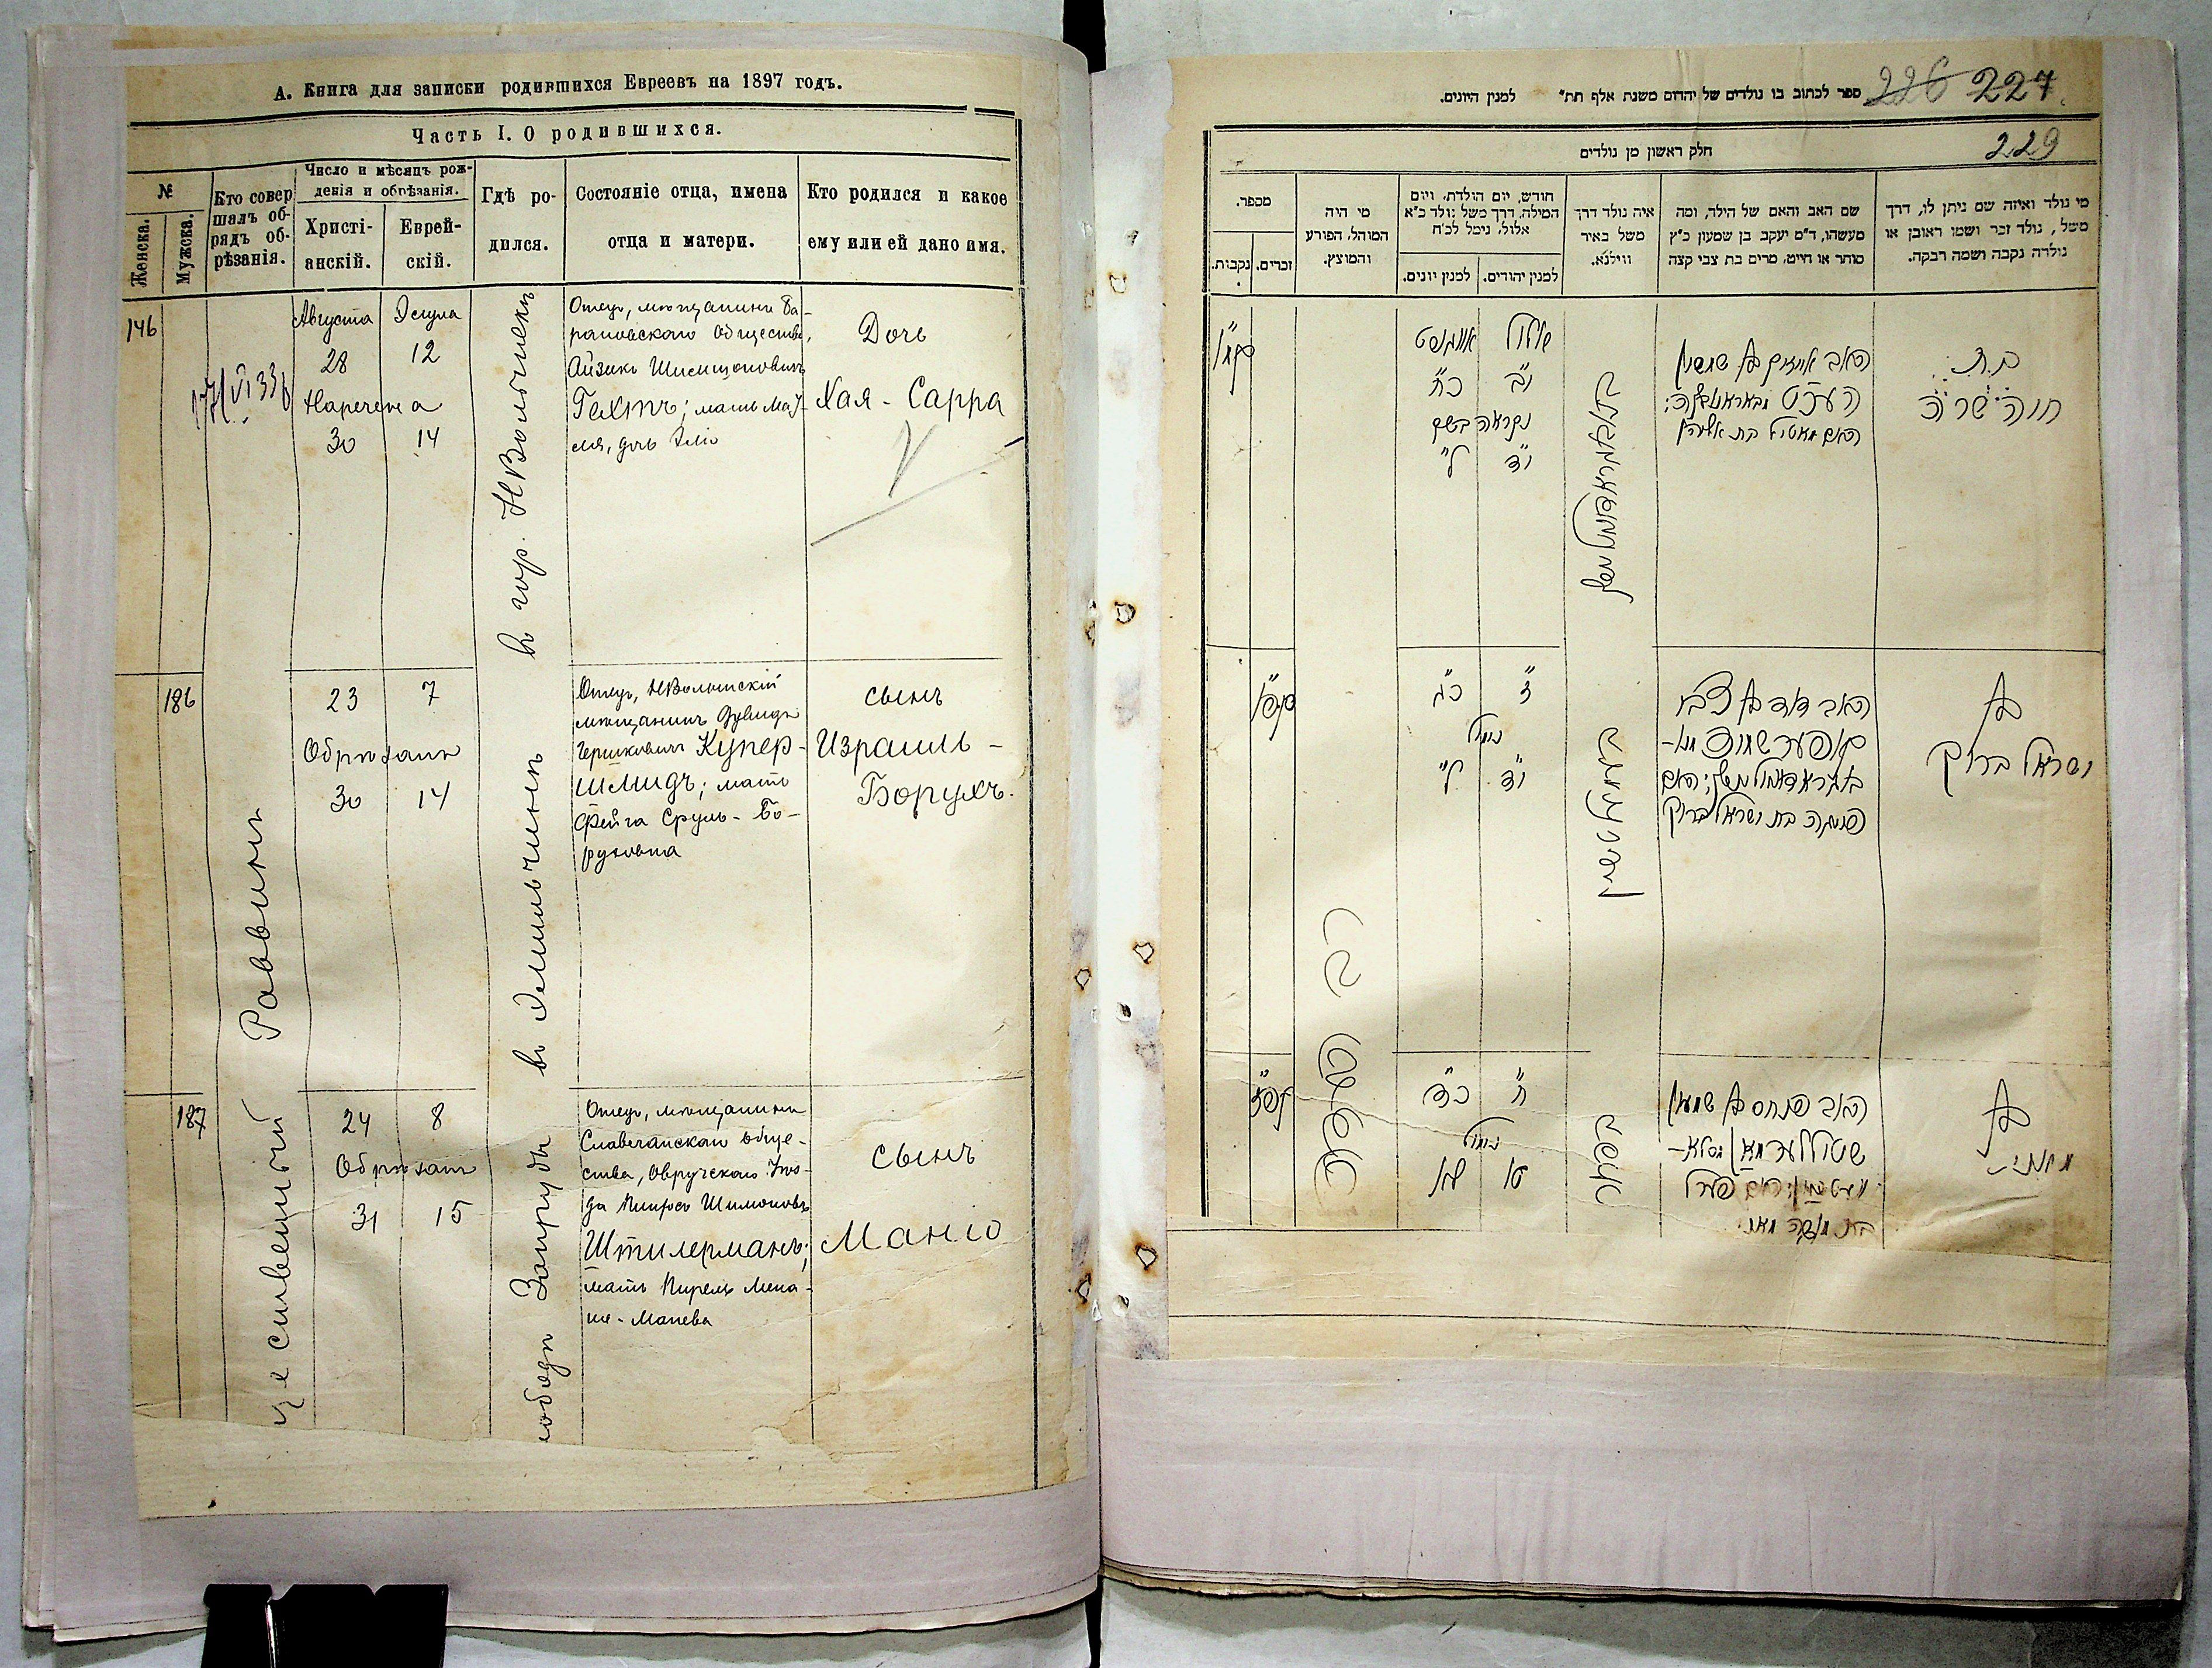 А. Книга для записки родившихся Евреевъ на 1897 годъ.
Часть I. О родившихся.
№
Женска.
Мужска.
Кто совер
шалъ об-
рядъ об-
рѣзанія.
Число и мѣсяцъ рож-
денія и обрѣзанія.
Христі-
анскій.
Еврей-
скій.
Гдѣ ро-
дился.
Состояніе отца, имена
отца и матери.
Кто родился и какое
ему или ей дано имя.
146
Августа
28
Наречена
30
Элула
12
14
в гор. НВолынскъ
Отецъ, мѣщанинъ Ба-
рановскаго общества,
Айзикъ Шимшоновичъ
Гехтъ; мать Мат-
ля, дочь Эліо
Дочь
Хая - Сарра
186
Раввинъ
23
7
Обрѣзанъ
30
14
въ Эмильчинѣ
Отецъ, НВолынскій
мѣщанинъ Дувидъ
Гершковичъ Купер-
шмидъ; мать
Фейга Сруль - Бо-
руховна
сынъ
Израиль -
Борухъ.
187
24
8
Обрѣзанъ
31
15
Отецъ, мѣщанинъ
Славечанскаго обще-
ства, Овручскаго Уѣз-
да Пинхосъ Шимоновъ
Штилерманъ;
мать Пирель Мена-
ше - Манева
сынъ
Маню
226 227
ספר לכתוב בו נולדים של יהדום משנת אלף תת״ למנין היונים.
229
חלק ראשון מן נולדים
מי נולד ואיזה שם ניתן לו, דרך
משל, נולד זכר ושמו ראובן או
נולדה נקבה ושמה רבקה.
שם האב והאם של הילד, ומה
מעשהו, ד״מ יעקב בן שמעון כ״ץ
סוחר או חייט, מרים בת צבי קצה
איה נולד דרך
משל באיד
ווילנא.
חודש, יום הולדת, ויום
המילה, דרך משל נולד כ״א
אלול, נימל לכ״ח
למנין יהודים.
למנין יונים.
מי היה
המוהל, הפורע
והמוצץ.
מספר.
זכרים.
נקבות.
בת
חיה שרה
האב אייזיק בן שמשון
העכט מבאראנאווקא;
האם מאטיל בת אליהו
אלול
אויגוסט
י״ב
כ״ח
נקראה בשם
י״ד
ל״
קמ״ו
בן
ישראל ברוך
האב דוד בן צבי
קופערשמיד מנ-
האם
פייגא בת ישראל ברוך
ז״
כ״ג
נימול
י״ד
ל״
קפ״ו
בן
האב פנחס בן שמעון
שטילערמאן מסלא-
האם פערל
בת מנשה מאני
ח״
כ״ד
נימול
ט״ו
ל״א
קפ״ז